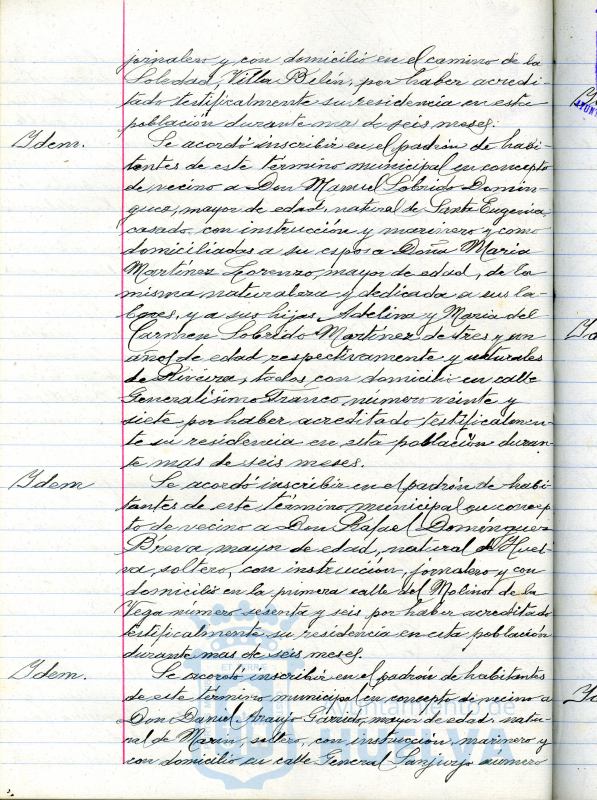 jornalero y con domicilio en el camino de la
Soledad, Villa Belén, por haber acredi-
tado testificalmente su residencia en esta
población durante mas de seis meses.
Idem.
Se acordó inscribir en el padrón de habi-
tantes de este término municipal en concepto
de vecino a Don Manuel Sobrido Domin-
guez, mayor de edad, natural de Santa Eugenia,
casado, con instrucción y marinero y como
domiciliadas a su esposa Doña Maria
Martínez Lorenzo, mayor de edad, de la
misma naturaleza y dedicada a sus la-
bores, y a sus hijas Adelina y Maria del
Carmen Sobrido Martínez de tres y un
años de edad respectivamente y naturales
de Riveira, todos, con domicilio en calle
Generalísimo Franco, número veinte y
siete por haber acreditado testificalmen-
te su residencia en esta población duran-
te mas de seis meses.
Idem
Se acordó inscribir en el padrón de habi-
tantes de este término municipal en concep-
to de vecino a Don Rafael Domínguez
Breva mayor de edad, natural de Huel-
va, soltero, con instrucción, jornalero y con
domicilio en la primera calle del Molino de la
Vega número sesenta y seis por haber acreditado
testificalmente su residencia en esta población
durante mas de seis meses.
Idem.
Se acordó inscribir en el padrón de habitantes
de este término municipal en concepto de vecino a
Don Daniel Araujo Garrido, mayor de edad, natu-
ral de Marin, soltero, con instrucción, marinero y
con domicilio en calle General Sanjurjo número
Ayuntamiento de
HUELVA